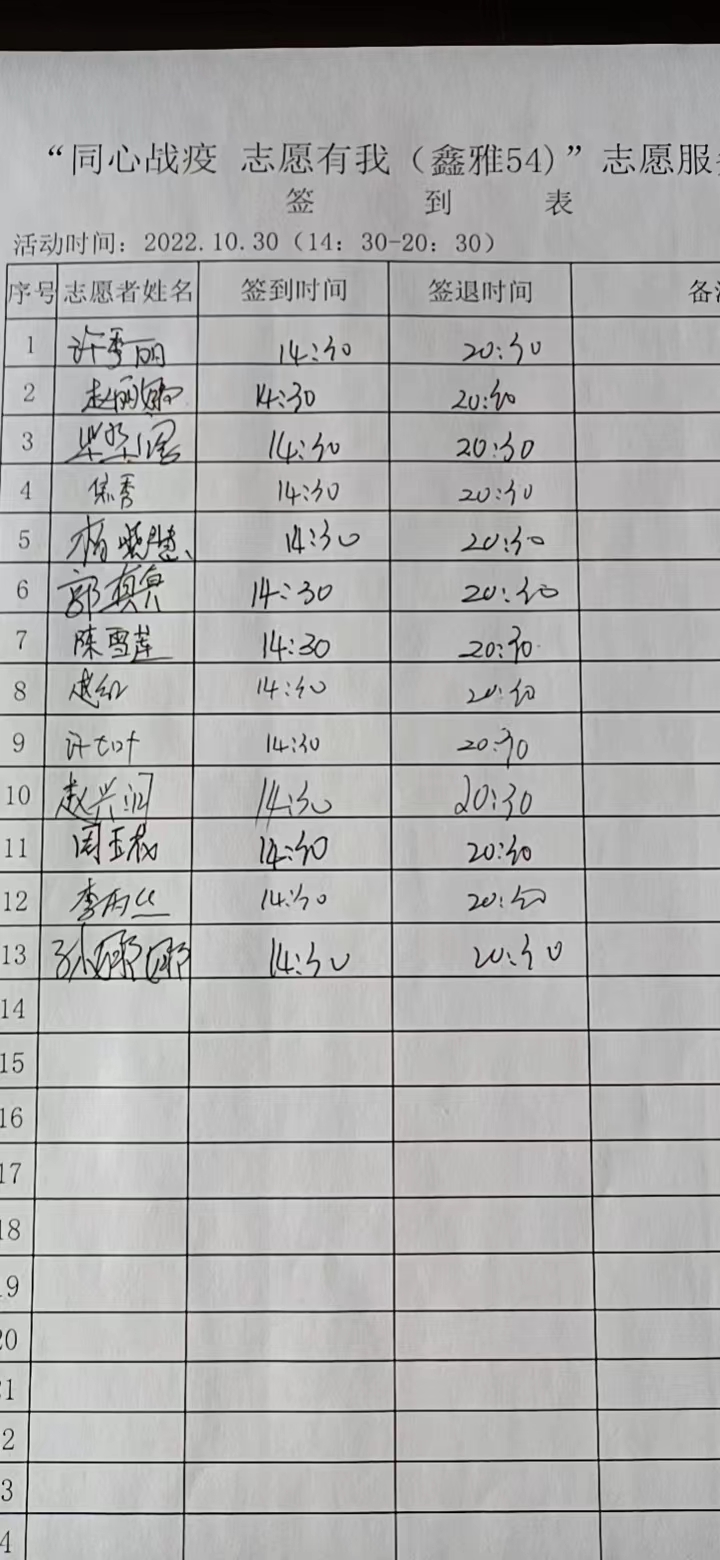 “同心战疫 志愿有我（鑫雅54)”志愿服
签 到 表
活动时间：2022.10.30（14：30-20：30）
序号 志愿者姓名 签到时间 签退时间 备
1 许秀丽 14:30 20:30
2 赵丽娜 14:30 20:30
3 14:30 20:30
4 14:30 20:30
5 杨晓慧 14:30 20:30
6 郭真真 14:30 20:30
7 陈雪莲 14:30 20:30
8 赵红 14:30 20:30
9 14:30 20:30
10 赵兴润 14:30 20:30
11 周玉 14:30 20:30
12 李 14:30 20:30
13 孙娜娜 14:30 20:30
14
15
16
17
18
19
20
21
2
3
4